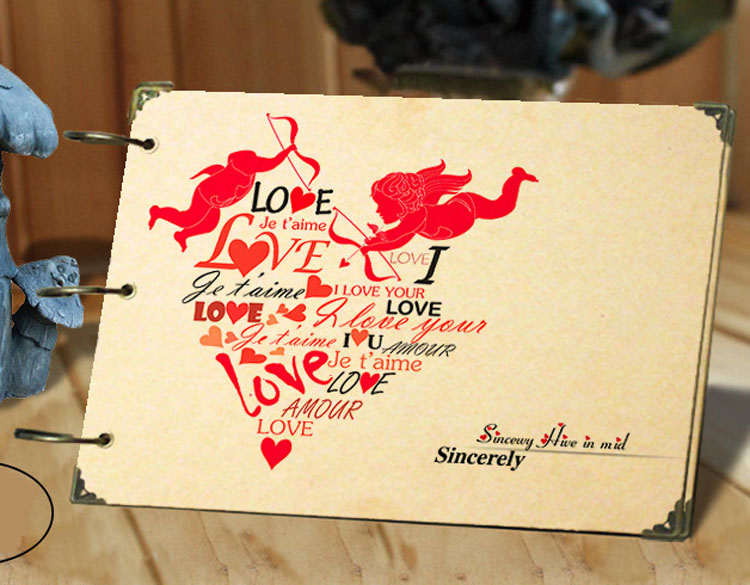 LOVE
Je t'aime
LOVE
LOVE I
Je t'aime I LOVE YOUR
LOVE LOVE
I love your
Je t'aime I U AMOUR
Love Je t'aime
LOVE
AMOUR
LOVE
Sincewy Hive in mid
Sincerely